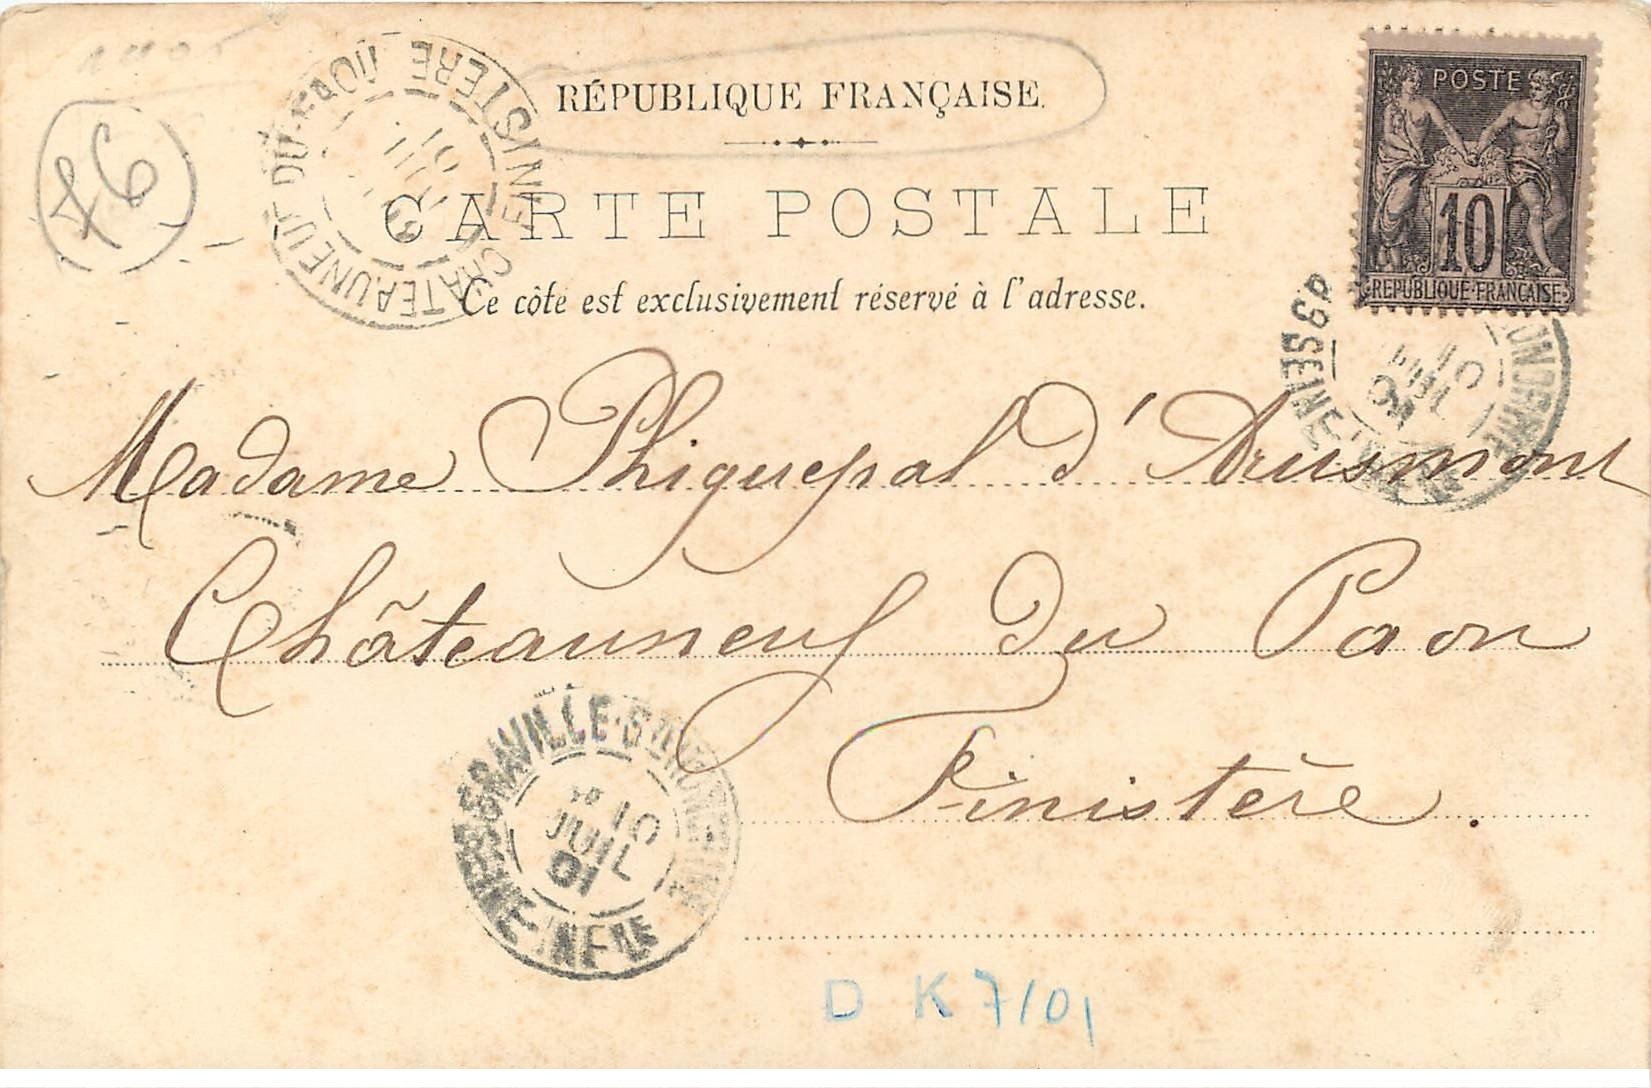 76
RÉPUBLIQUE FRANÇAISE.
CARTE POSTALE
Ce côté est exclusivement réservé à l'adresse.
POSTE
10
REPUBLIQUE FRANÇAISE
CHATEAUNEUF DU FAOU FINISTERE
SEINE INFRE
10
JUIL
01
Madame Phiquepal d'Arusmont
Châteauneuf Du Paon
Finistère.
GRAVILLE-STE-HONORINE
SEINE-INFRE
10
JUIL
01
D K 7/01